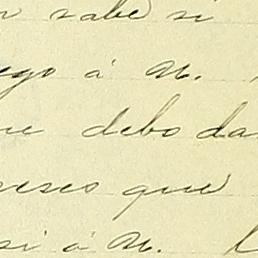 sabe si
ego á M.
ue debo da
eses que
si á M.